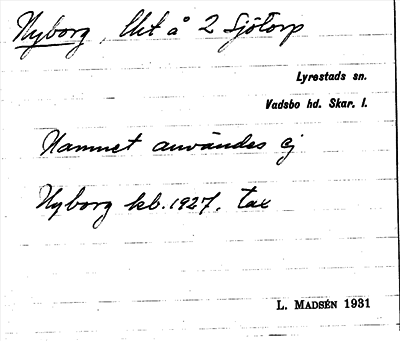 Nyborg, lht å 2 Sjötorp
Lyrestads sn.
Vadsbo hd. Skar. l.
Namnet användes ej
Nyborg kb. 1927. tax
L. MADSÉN 1931